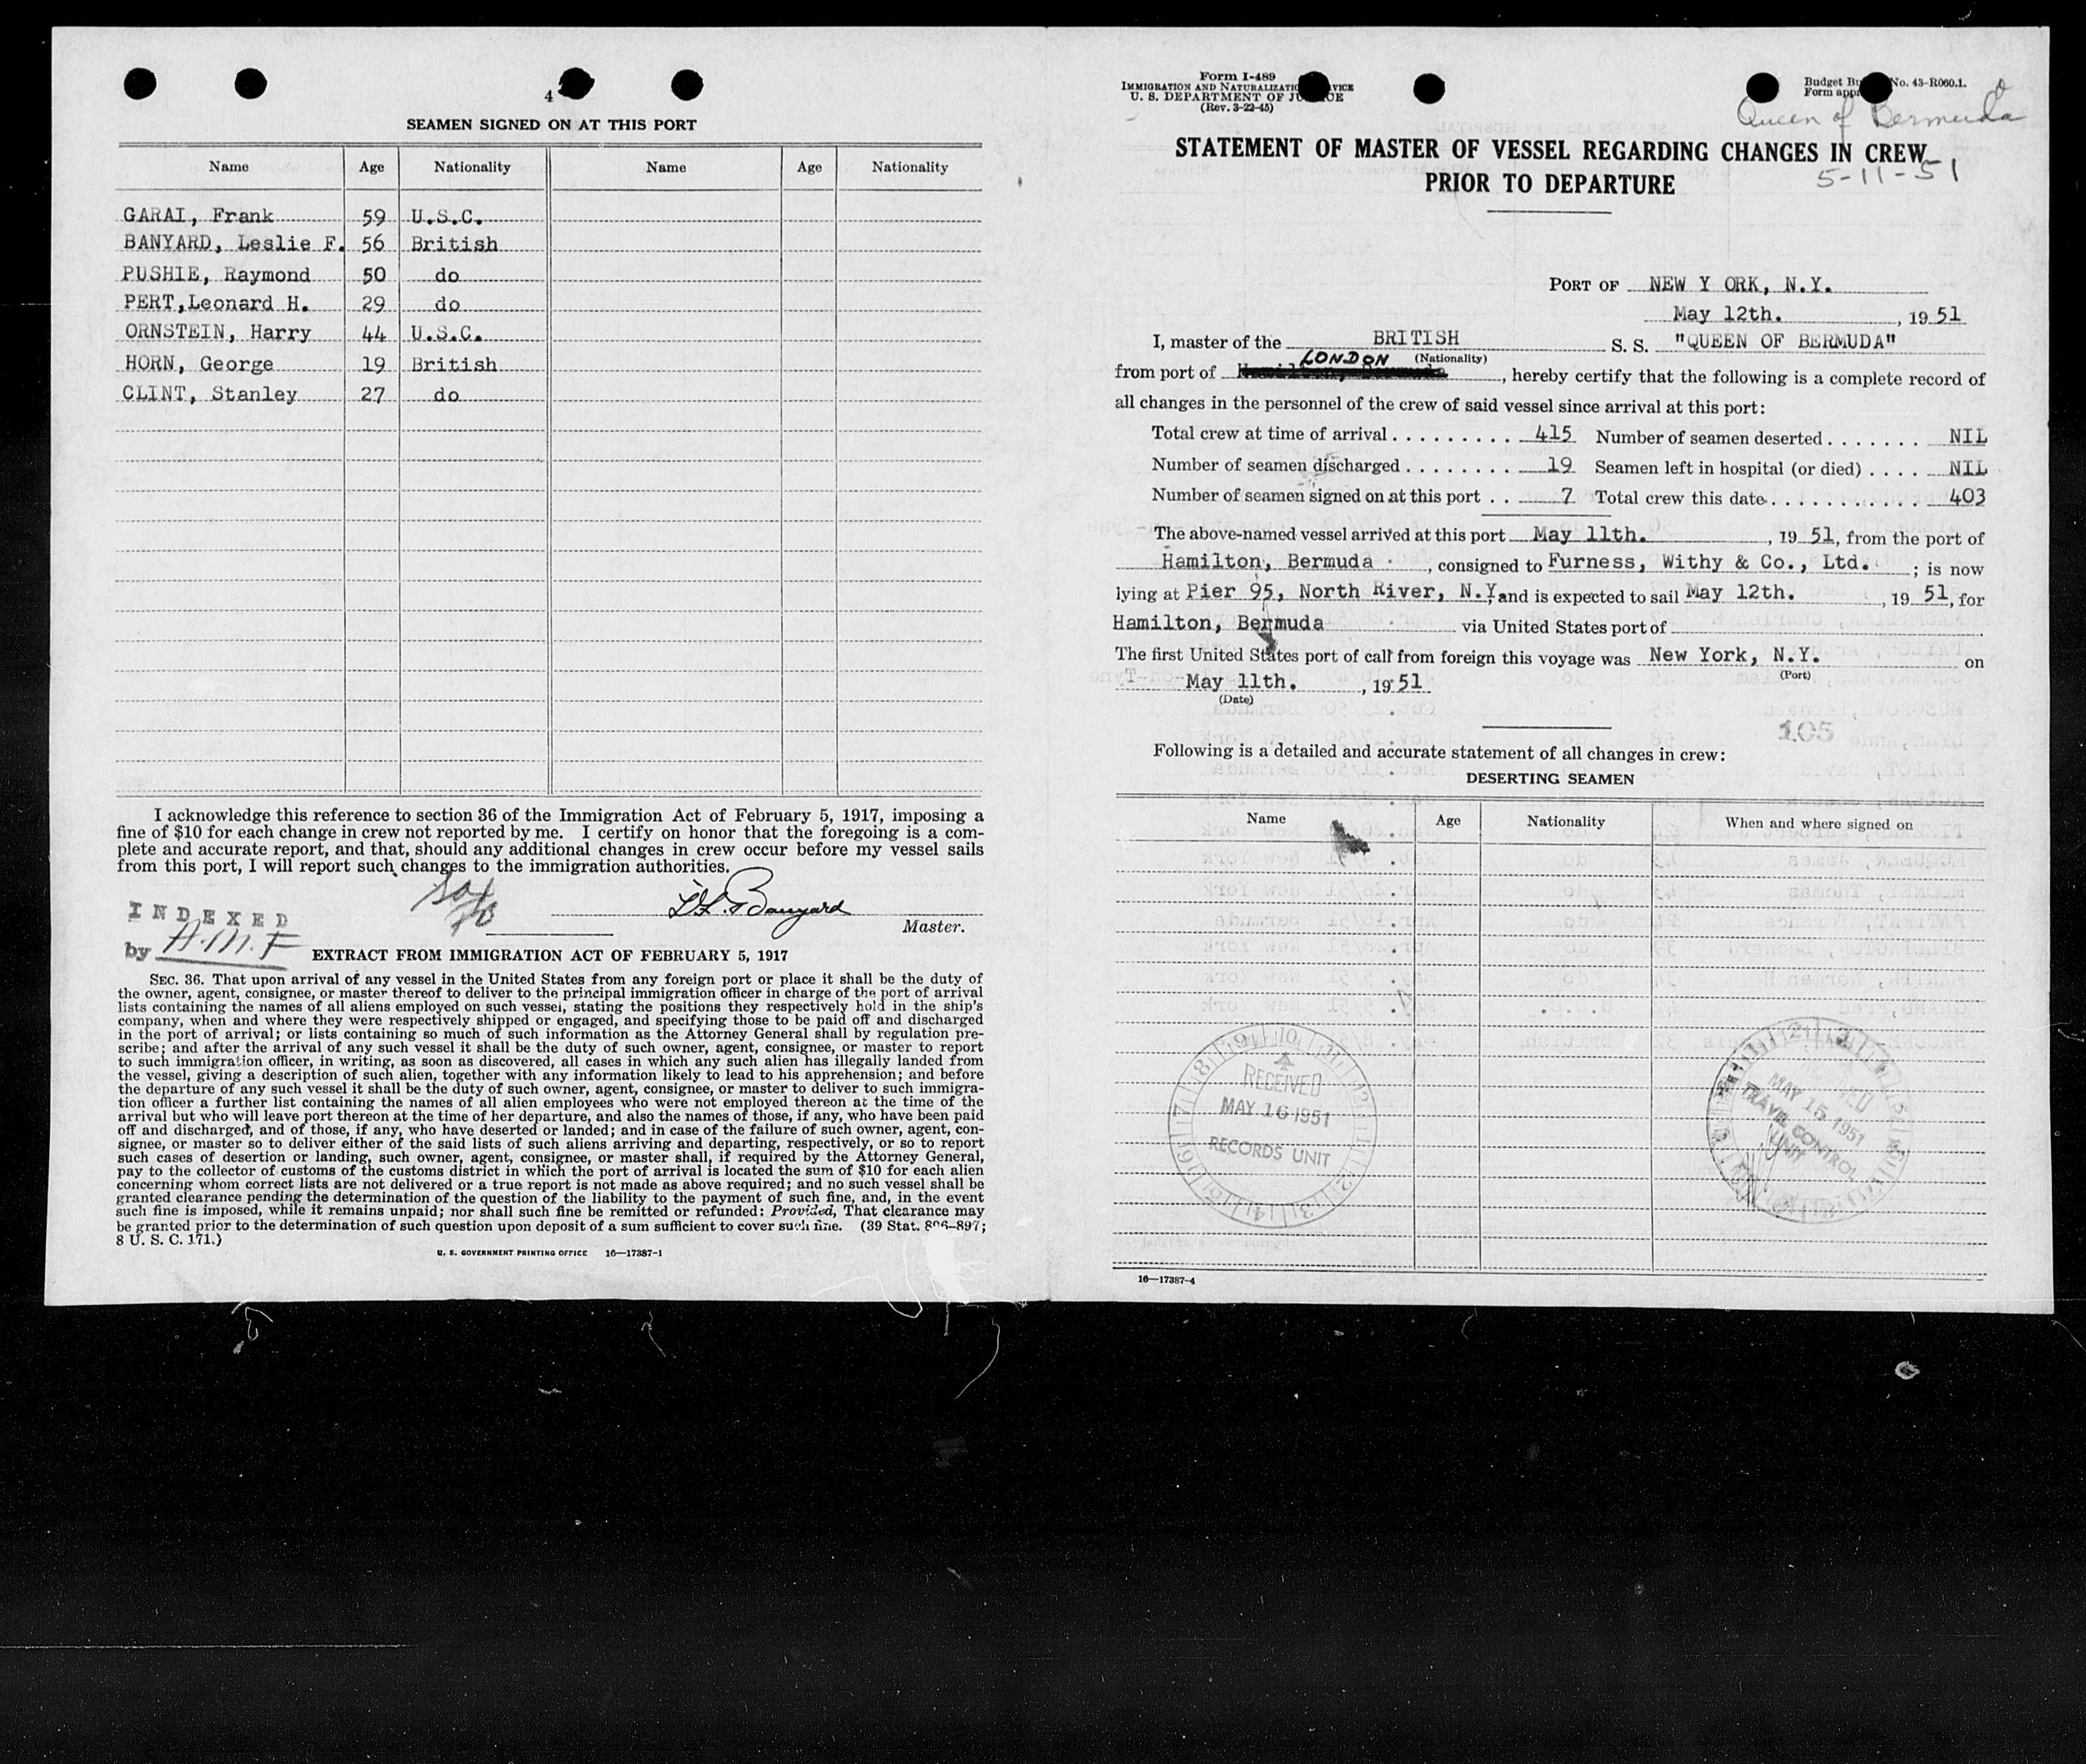 4
SEAMEN SIGNED ON AT THIS PORT
Name Age Nationality Name Age Nationality
GARAI, Frank 59 U.S.C.
BANYARD, Leslie F. 56 British
PUSHIE, Raymond 50 do
PERT,Leonard H. 29 do
ORNSTEIN, Harry 44 U.S.C.
HORN, George 19 British
CLINT, Stanley 27 do
I acknowledge this reference to section 36 of the Immigration Act of February 5, 1917, imposing a
fine of $10 for each change in crew not reported by me. I certify on honor that the foregoing is a com-
plete and accurate report, and that, should any additional changes in crew occur before my vessel sails
from this port, I will report such changes to the immigration authorities.
L.F. Banyard
Master.
INDEXED
by A.M.F
EXTRACT FROM IMMIGRATION ACT OF FEBRUARY 5, 1917
SEC. 36. That upon arrival of any vessel in the United States from any foreign port or place it shall be the duty of
the owner, agent, consignee, or master thereof to deliver to the principal immigration officer in charge of the port of arrival
lists containing the names of all aliens employed on such vessel, stating the positions they respectively hold in the ship's
company, when and where they were respectively shipped or engaged, and specifying those to be paid off and discharged
in the port of arrival; or lists containing so much of such information as the Attorney General shall by regulation pre-
scribe; and after the arrival of any such vessel it shall be the duty of such owner, agent, consignee, or master to report
to such immigration officer, in writing, as soon as discovered, all cases in which any such alien has illegally landed from
the vessel, giving a description of such alien, together with any information likely to lead to his apprehension; and before
the departure of any such vessel it shall be the duty of such owner, agent, consignee, or master to deliver to such immigra-
tion officer a further list containing the names of all alien employees who were not employed thereon at the time of the
arrival but who will leave port thereon at the time of her departure, and also the names of those, if any, who have been paid
off and discharged, and of those, if any, who have deserted or landed; and in case of the failure of such owner, agent, con-
signee, or master so to deliver either of the said lists of such aliens arriving and departing, respectively, or so to report
such cases of desertion or landing, such owner, agent, consignee, or master shall, if required by the Attorney General,
pay to the collector of customs of the customs district in which the port of arrival is located the sum of $10 for each alien
concerning whom correct lists are not delivered or a true report is not made as above required; and no such vessel shall be
granted clearance pending the determination of the question of the liability to the payment of such fine, and, in the event
such fine is imposed, while it remains unpaid; nor shall such fine be remitted or refunded: Provided, That clearance may
be granted prior to the determination of such question upon deposit of a sum sufficient to cover such fine. (39 Stat. 896-897;
8 U. S. C. 171.)
U. S. GOVERNMENT PRINTING OFFICE 16—17387-1
Form I-489
IMMIGRATION AND NATURALIZATION SERVICE
U. S. DEPARTMENT OF JUSTICE
(Rev. 3-22-45)
Budget Bu No. 43-R060.1.
Form appr
Queen of Bermuda
STATEMENT OF MASTER OF VESSEL REGARDING CHANGES IN CREW
PRIOR TO DEPARTURE
5-11-51
PORT OF NEW Y ORK, N.Y.
May 12th. , 19 51
I, master of the BRITISH S. S. "QUEEN OF BERMUDA"
LONDON (Nationality)
from port of Hamilton, Bermuda , hereby certify that the following is a complete record of
all changes in the personnel of the crew of said vessel since arrival at this port:
Total crew at time of arrival . . . . . . . . . 415 Number of seamen deserted . . . . . . . NIL
Number of seamen discharged . . . . . . . . 19 Seamen left in hospital (or died) . . . . NIL
Number of seamen signed on at this port . . 7 Total crew this date . . . . . . . . . . . . 403
The above-named vessel arrived at this port May 11th. , 19 51, from the port of
Hamilton, Bermuda , consigned to Furness, Withy & Co., Ltd. ; is now
lying at Pier 95, North River, N.Y, and is expected to sail May 12th. , 19 51, for
Hamilton, Bermuda via United States port of
The first United States port of call from foreign this voyage was New York, N.Y. on
(Port)
May 11th. , 19 51
(Date)
105
Following is a detailed and accurate statement of all changes in crew:
DESERTING SEAMEN
Name Age Nationality When and where signed on
RECEIVED
MAY 16 1951
RECORDS UNIT
MAY 15 1951
TRAVEL CONTROL
UNIT
16—17387-4